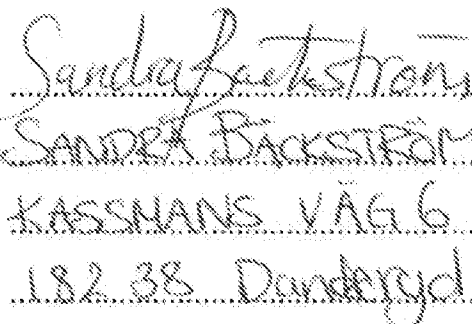 Sandra Backström
SANDRA BÄCKSTRÖM
KASSMANS VÄG 6
182 38 Danderyd